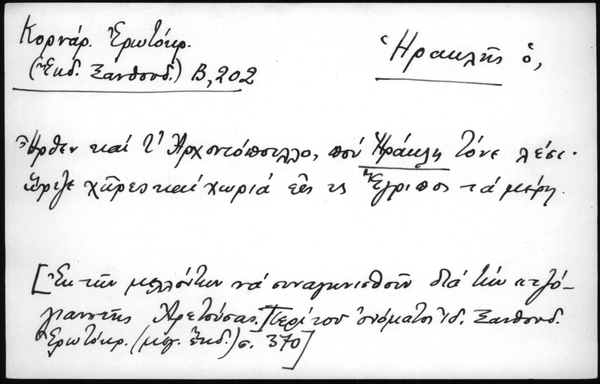 Κορνάρ. Ἐρωτόκρ.
(Ἐκδ. Ξανθουδ.) Β, 202
Ἡρακλῆς ὁ,
Ἦρθεν καὶ τ' Ἀρχοντόπουλλο, πού Ἡράκλη τόνε λέσι·
ὥριζε χῶρες καὶ χωριά εἰς τς Ἔγριπος τά μέρη.
[Ἐκ τῶν μελλόντων νά συναγωνισθοῦν διά τήν
τῆς Ἀρετούσας. Περί του ὀνόματος ἰδ. Ξανθουδ.
Ἐρωτόκρ. (μεγ. ἔκδ.) σ. 370]